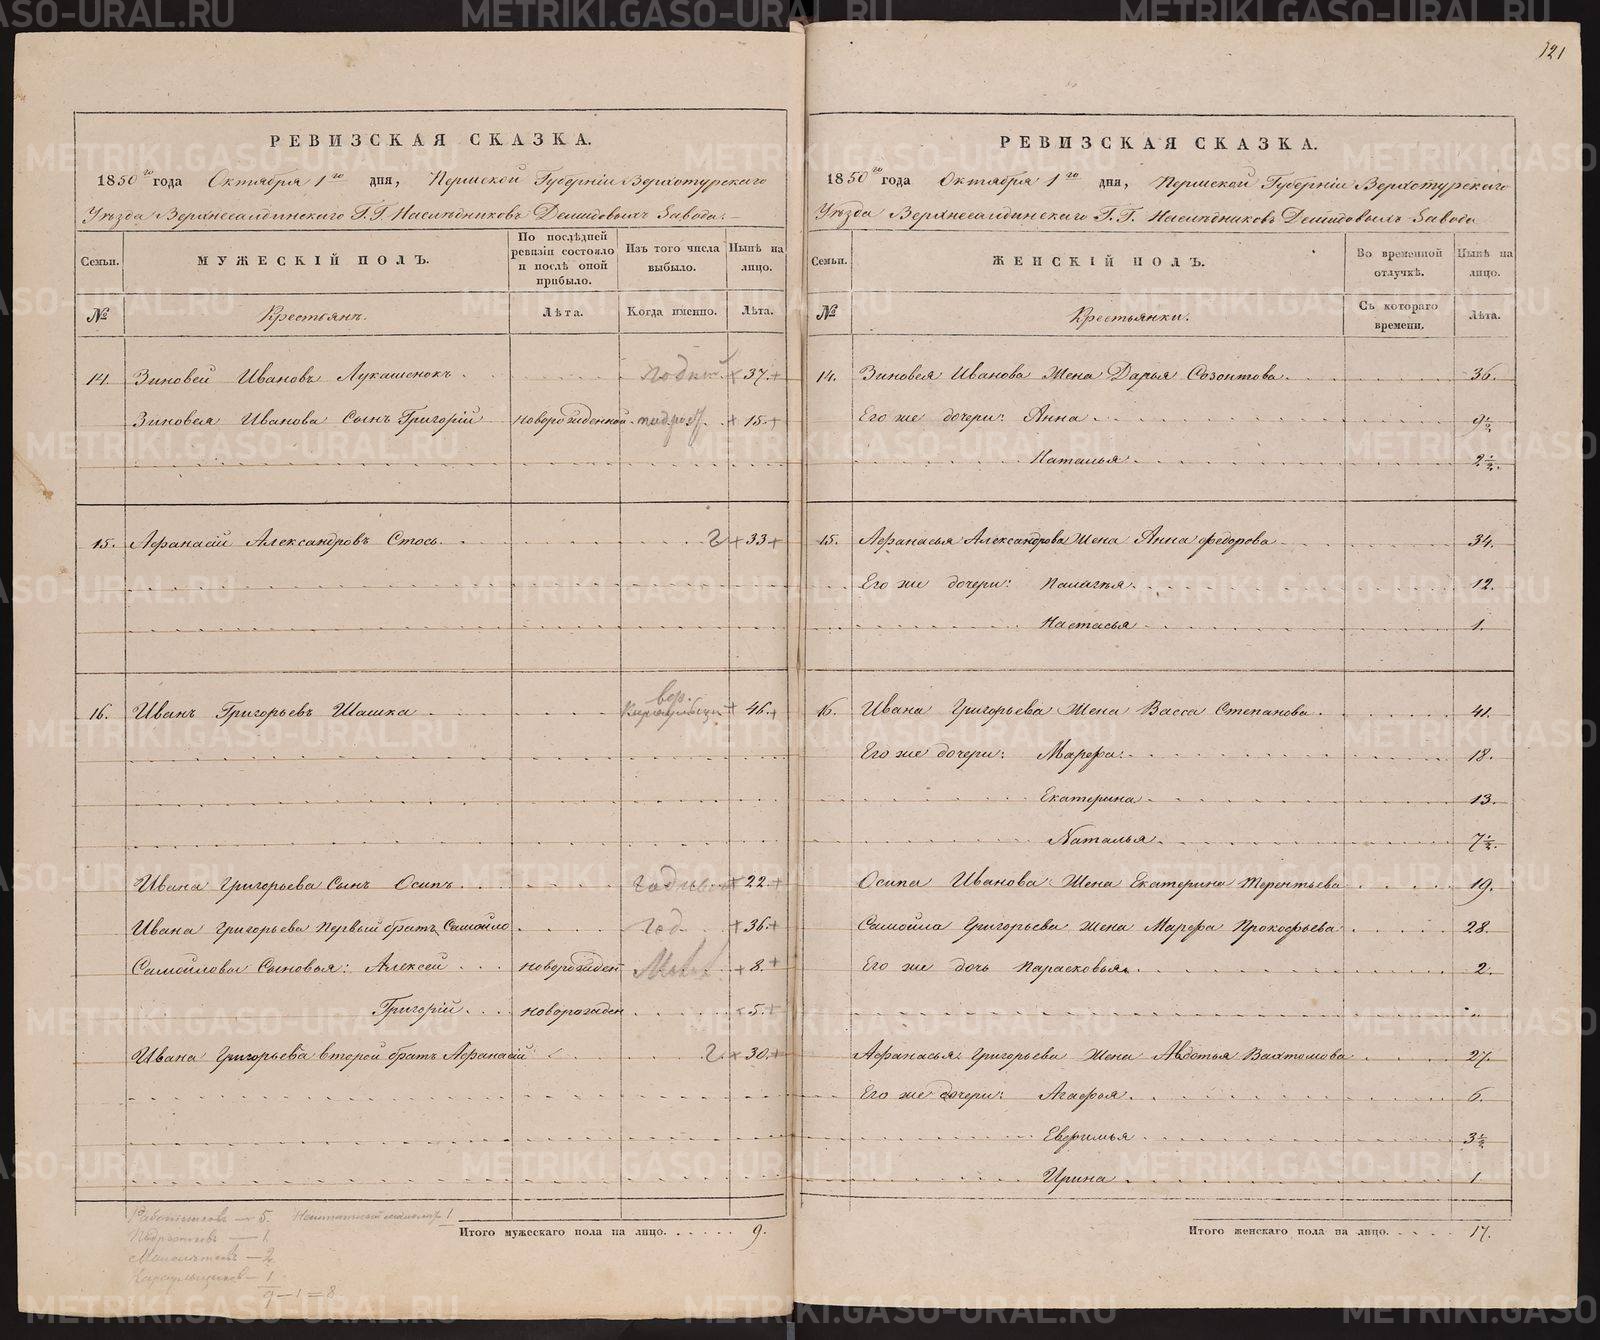 121
РЕВИЗСКАЯ СКАЗКА.
1850го года Октября 1го дня, Пермской Губерніи Верхотурскаго
Уѣзда Верхнесалдинскаго Г.Г. Наслѣдниковъ Демидовыхъ Завода:
Семьи. МУЖЕСКІЙ ПОЛЪ. По послѣдней ревизіи состояло и послѣ оной прибыло. Изъ того числа выбыло. Нынѣ на лицо.
№ Крестьянъ. Лѣта. Когда именно. Лѣта.
14. Зиновей Ивановъ Лукашенокъ. годный +37.+
Зиновея Иванова Сынъ Григорій новорожденной +15.+
15. Афанасій Александровъ Стось. г +33+
16. Иванъ Григорьевъ Шашка вер. +46.+
Ивана Григорьева Сынъ Осипъ. +22.+
Ивана Григорьева первый братъ Самойло год. +36.+
Самойловы Сыновья: Алексей новорожден +8.+
Григорій новорожден +5.+
Ивана Григорьева второй братъ Афанасій г. +30.+
Работниковъ — 5.
Подростковъ — 1
Малолѣтковъ — 2
Караульщиковъ — 1
9 — 1 = 8
Итого мужескаго пола на лицо. 9.
РЕВИЗСКАЯ СКАЗКА.
1850го года Октября 1го дня, Пермской Губерніи Верхотурскаго
Уѣзда Верхнесалдинскаго Г.Г. Наслѣдниковъ Демидовыхъ Завода
Семьи. ЖЕНСКІЙ ПОЛЪ. Во временной отлучкѣ. Нынѣ на лицо.
№ Крестьянки. Съ котораго времени. Лѣта.
14. Зиновея Иванова Жена Дарья Созонтова. 36.
Его же дочери: Анна 9½
Наталья 2½.
15. Афанасья Александрова Жена Анна Федорова 34.
Его же дочери: Палагья 12.
Настасья 1.
16. Ивана Григорьева Жена Васса Степанова. 41.
Его же дочери: Марфа: 18.
Екатерина 13.
Наталья 7½.
Осипа Иванова Жена Екатерина Терентьева 19.
Самойла Григорьева жена Марфа Прокофьева 28.
Его же дочь Парасковья. 2.
Афанасья Григорьева Жена Авдотья Вахтомова 27.
Его же дочери: Агафья. 6.
Евфимья 3½
Ирина 1
Итого женскаго пола на лицо. 17.